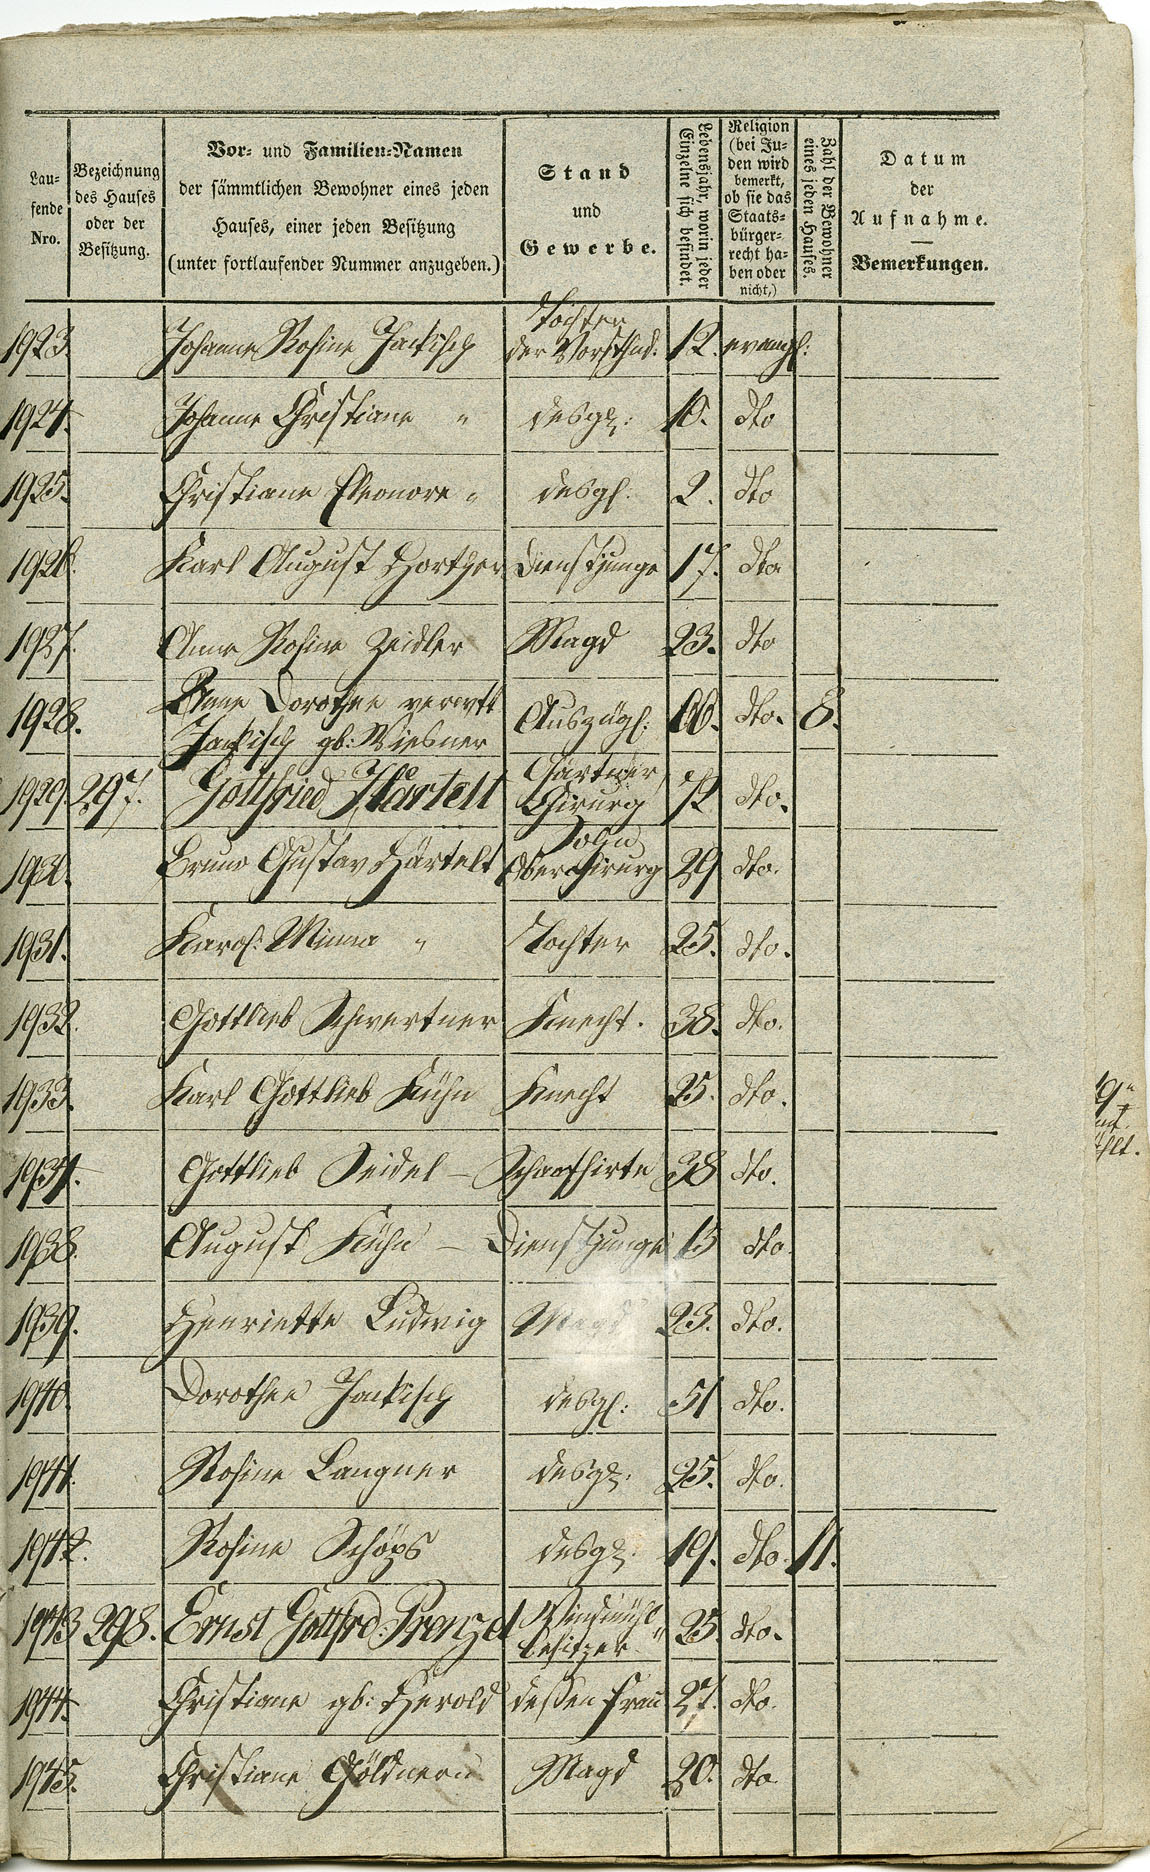 Lau-
fende
Nro.
Bezeichnung
des Hauses
oder der
Besitzung.
Vor- und Familien-Namen
der sämmtlichen Bewohner eines jeden
Hauses, einer jeden Besitzung
(unter fortlaufender Nummer anzugeben.)
Stand
und
Gewerbe.
Lebensjahr, worin jeder
Einzelne sich befindet.
Religion
(bei Ju-
den wird
bemerkt,
ob sie das
Staats-
bürger-
recht ha-
ben oder
nicht.)
Zahl der Bewohner
eines jeden Hauses.
Datum
der
Aufnahme.
Bemerkungen.
Tochter
1923. Johanne Rosine Jackisch der Vorsthnd: 12. evangl:
1924. Johanne Christiane " desgl: 10. dto
1925. Christiane Eleonore " desgl. 2. dto
1926. Karl August Dienstjunge 17. dto
1927. Anna Rosine Zeidler Magd 23. dto
1928. Anne Dorothee verwtt
Jackisch gb: Wiesner Auszügl: 66. dto. 8.
Gärtner,
1929. 297. Gottfried Härtelt Chirurg 72 dto.
Sohn
1930. Bruno Gustav Härtelt Oberchirurg 29 dto.
1931. Karol: Minna " Tochter 25. dto.
1932. Gottlieb Schwertner Knecht. 38. dto.
1933. Karl Gottlieb Kühn Knecht 25. dto.
Gottlieb Seidel — Schaafhirte 38 dto.
1938. August Kühn — Dienstjunge 15 dto.
1939. Henriette Ludwig Magd 23. dto.
1940. Dorothee Jackisch desgl: 51 dto.
1941. Rosine Langner desgl. 25. dto.
1942. Rosine Schöps desgl. 19. dto. 11.
Windmühl-
1943 298. Ernst Gottfrd: Prenzel besitzer 25. dto.
1944. Christiane gb: Herold dessen Frau 27. dto.
1945. Christiane Göldnern Magd 20. dto